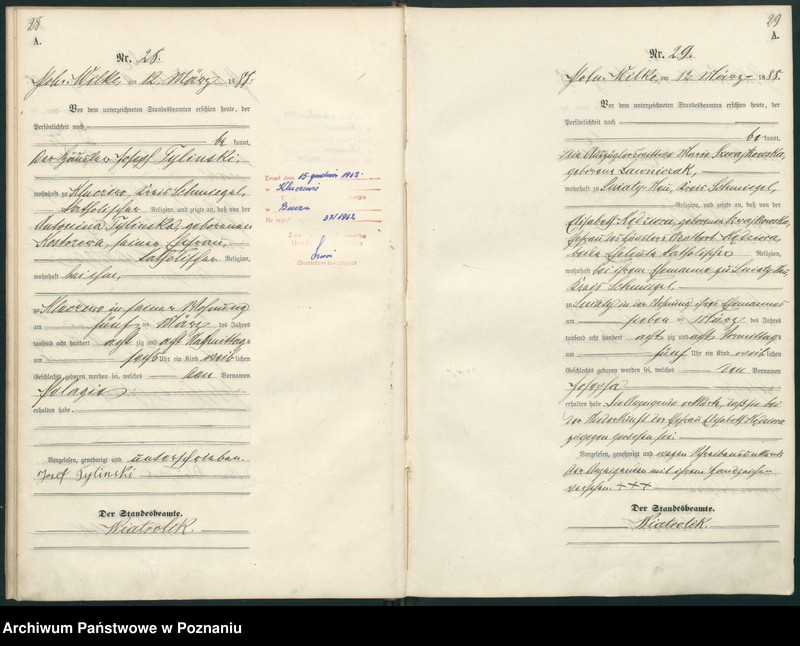 28
A.
Nr. 28.
Poln. Wilke, am 12. März 1888.
Vor dem unterzeichneten Standesbeamten erschien heute, der
Persönlichkeit nach
be kannt,
der Häusler Josef Tylinski,
wohnhaft zu Kluczewo, Kreis Schmiegel,
katholischer Religion, und zeigte an, daß von der
Antonina Tylinski, geborenen
seiner Ehefrau,
katholischer Religion,
wohnhaft bei ihm,
zu Kluczewo in seiner Wohnung
am fünf ten März des Jahres
tausend acht hundert acht zig und acht Nachmittag
um sechs Uhr ein Kind weib lichen
Geschlechts geboren worden sei, welches den Vornamen
Pelagia
erhalten habe.
Vorgelesen, genehmigt und unterschrieben.
Josef Tylinski
Der Standesbeamte.
Wiatrolik.
Zmarł dnia 15 grudnia 1962.
w
w
Nr rejestr. 37/1962
29
A.
Nr. 29.
Poln. Wilke, am 12. März 1888.
Vor dem unterzeichneten Standesbeamten erschien heute, der
Persönlichkeit nach
be kannt,
die Marie
geborene Lawniczak,
wohnhaft zu Kreis Schmiegel,
Religion, und zeigte an, daß von der
Elisabeth geborenen
Ehefrau des Häuslers
beide katholischer Religion,
wohnhaft bei ihrem Ehemanne zu
Kreis Schmiegel,
zu in der Wohnung ihres Ehemannes
am sieben ten März des Jahres
tausend acht hundert acht zig und acht Vormittag
um fünf Uhr ein Kind weib lichen
Geschlechts geboren worden sei, welches den Vornamen
Josepha
erhalten habe. Die Anzeigende erklärte, daß sie bei
der Niederkunft der Ehefrau Elisabeth
zugegen gewesen sei.
Vorgelesen, genehmigt und wegen Schreibensunkunde
der Anzeigenden mit ihrem Handzeichen
versehen. +++
Der Standesbeamte.
Wiatrolik.
Archiwum Państwowe w Poznaniu